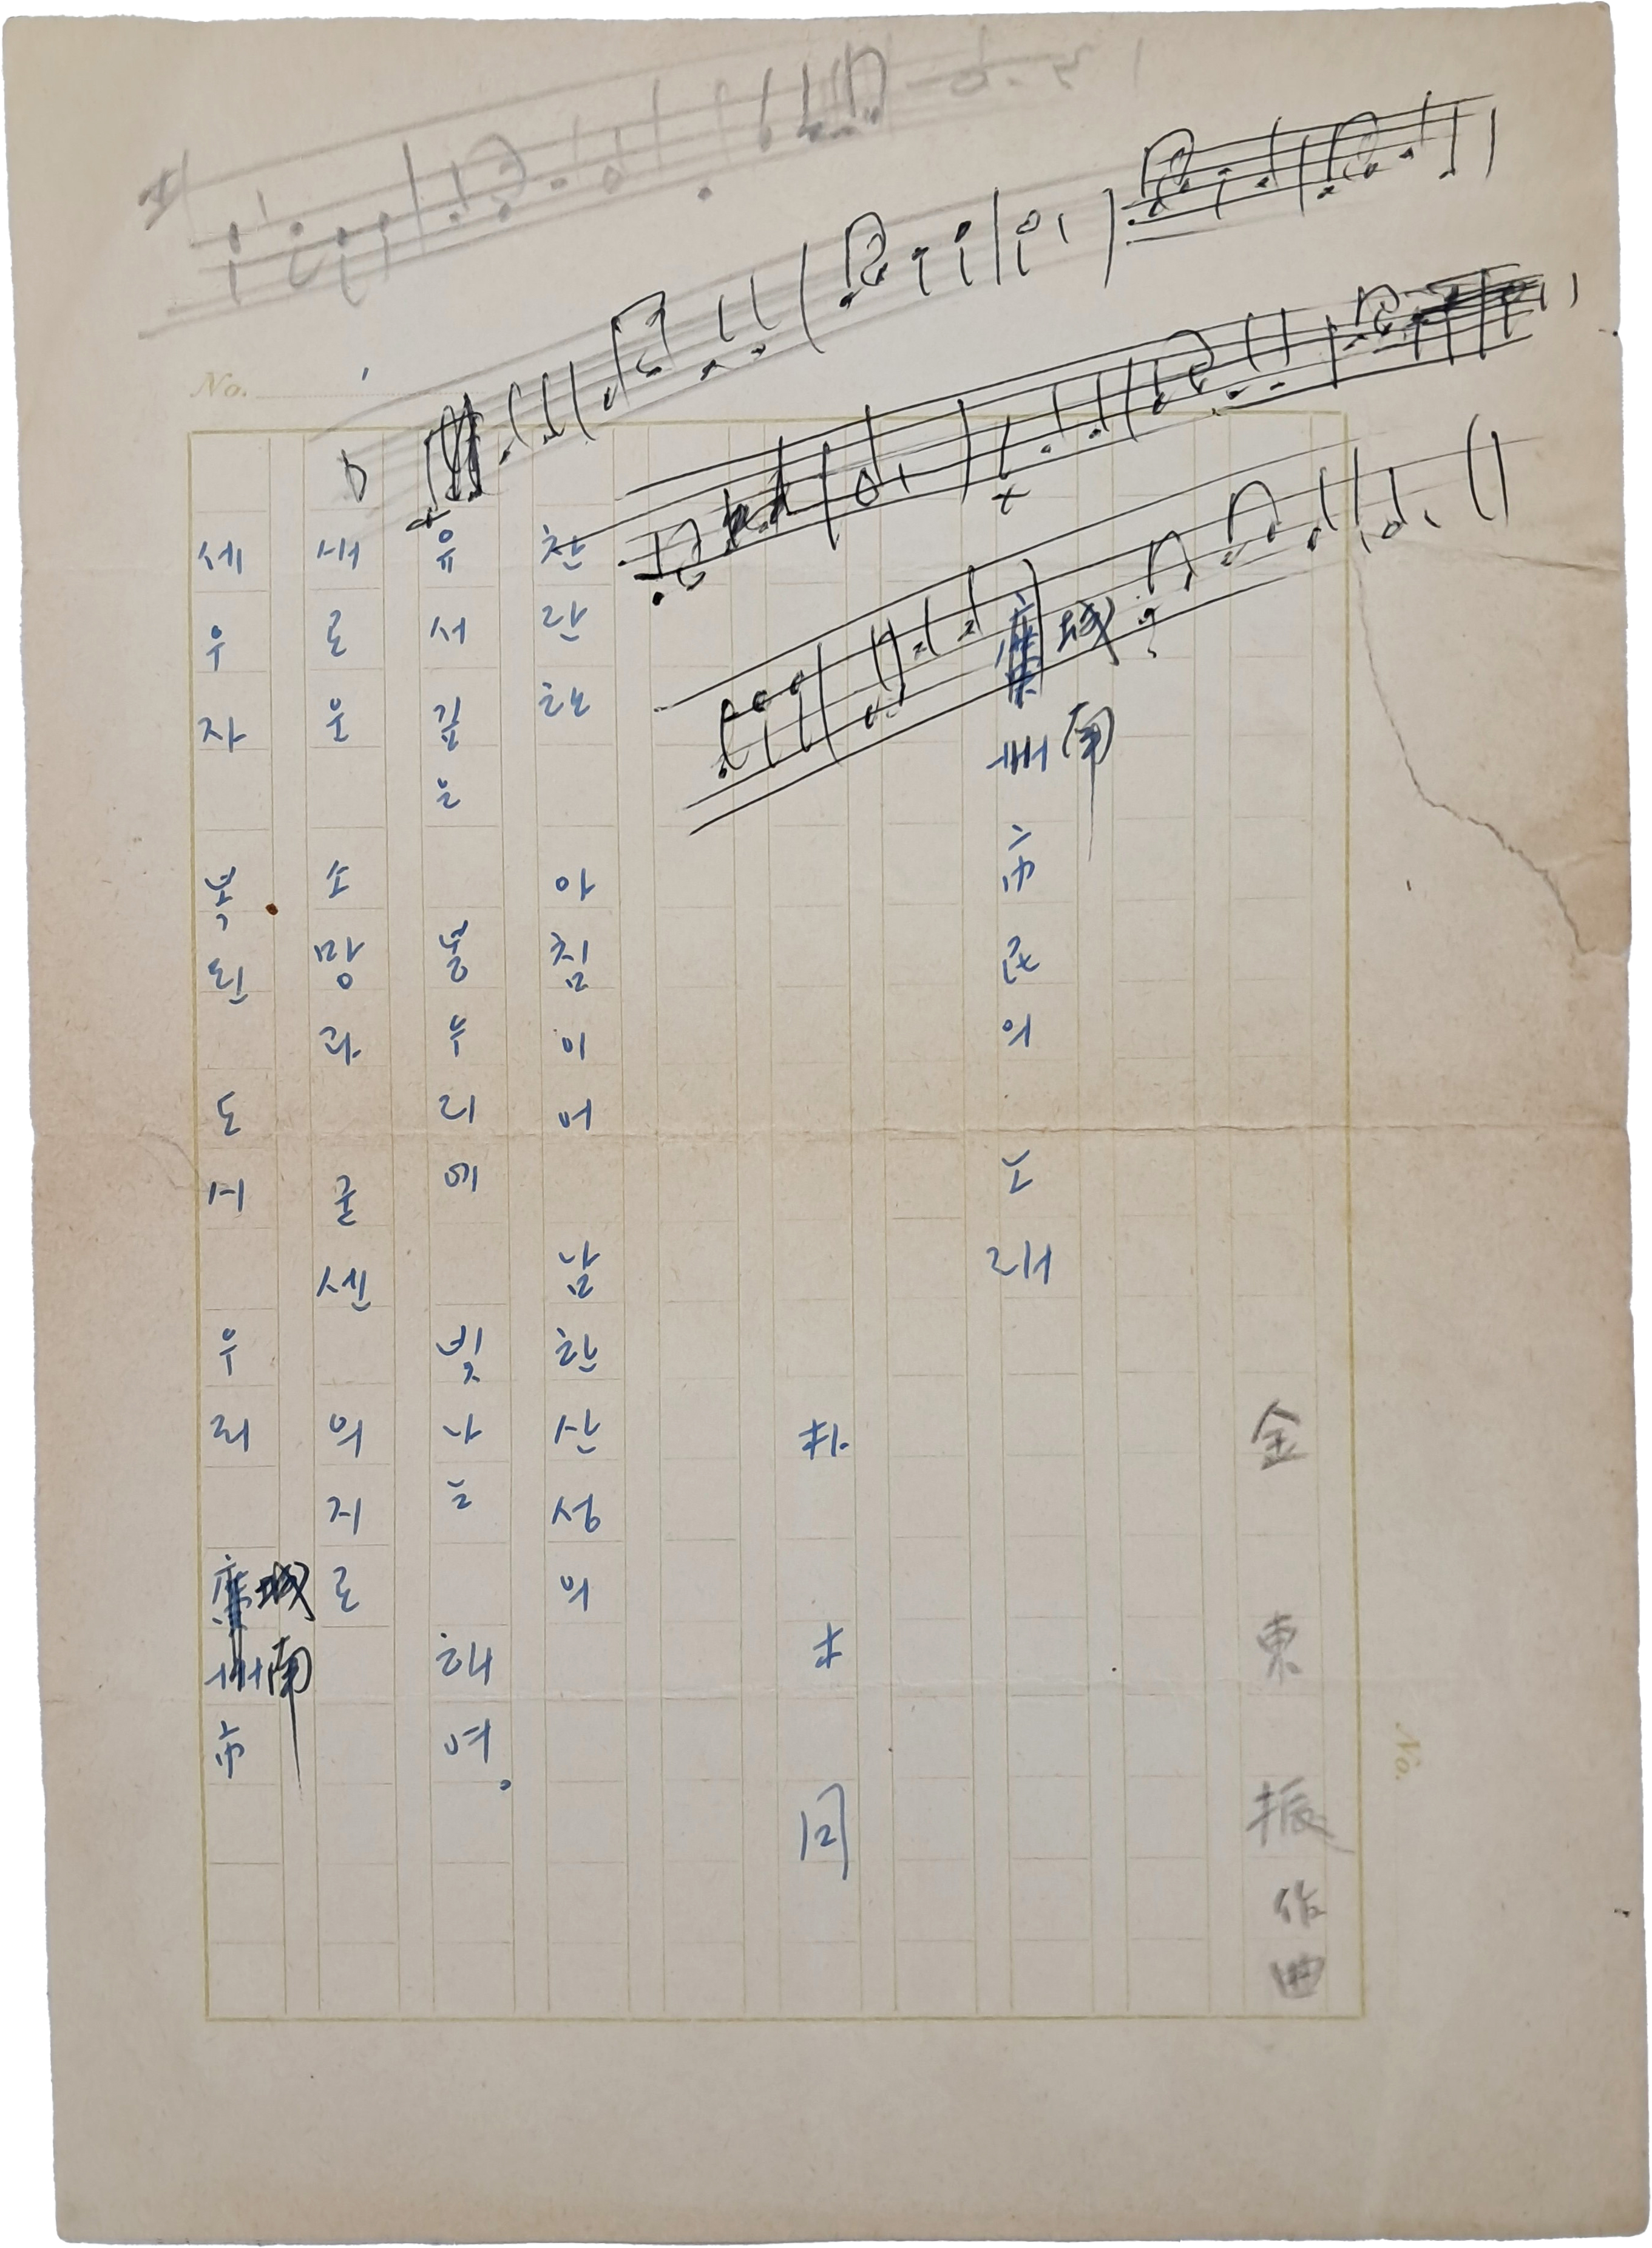 No.
No.
金東振作曲
城南市民의 노래
朴木月
찬란한 아침이여 남한산성의
유서깊은 누리에 빛나는 해여.
새로운 소망과 굳센 의지로
세우자 복된 도시 우리 城南市